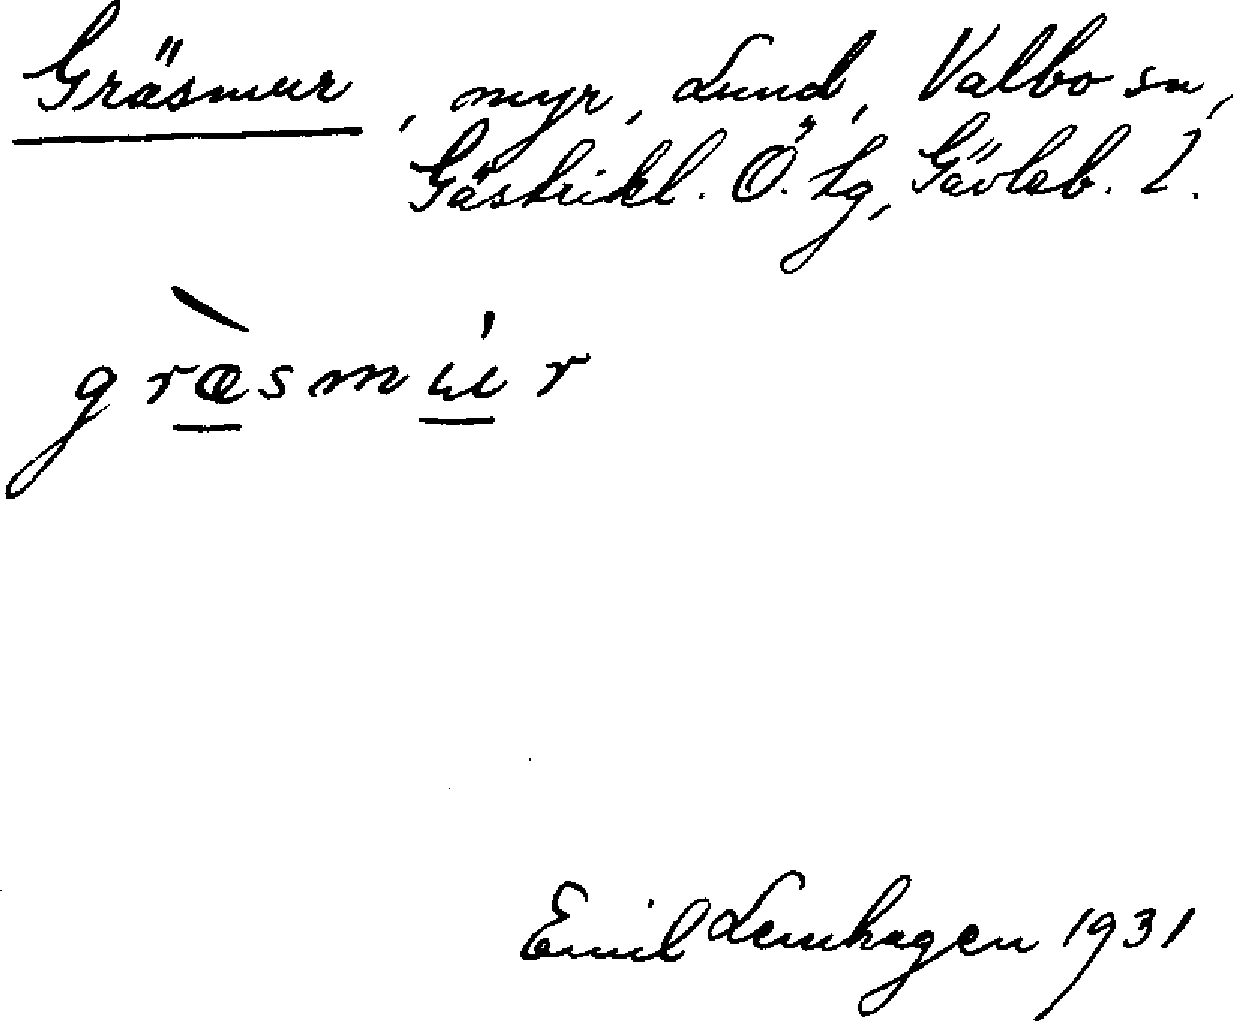 Gräsmur, myr, Lund, Valbo sn,
Gästrikl. Ö. tg, Gävleb. l.
græ̀smúr
Emil Lemhagen 1931